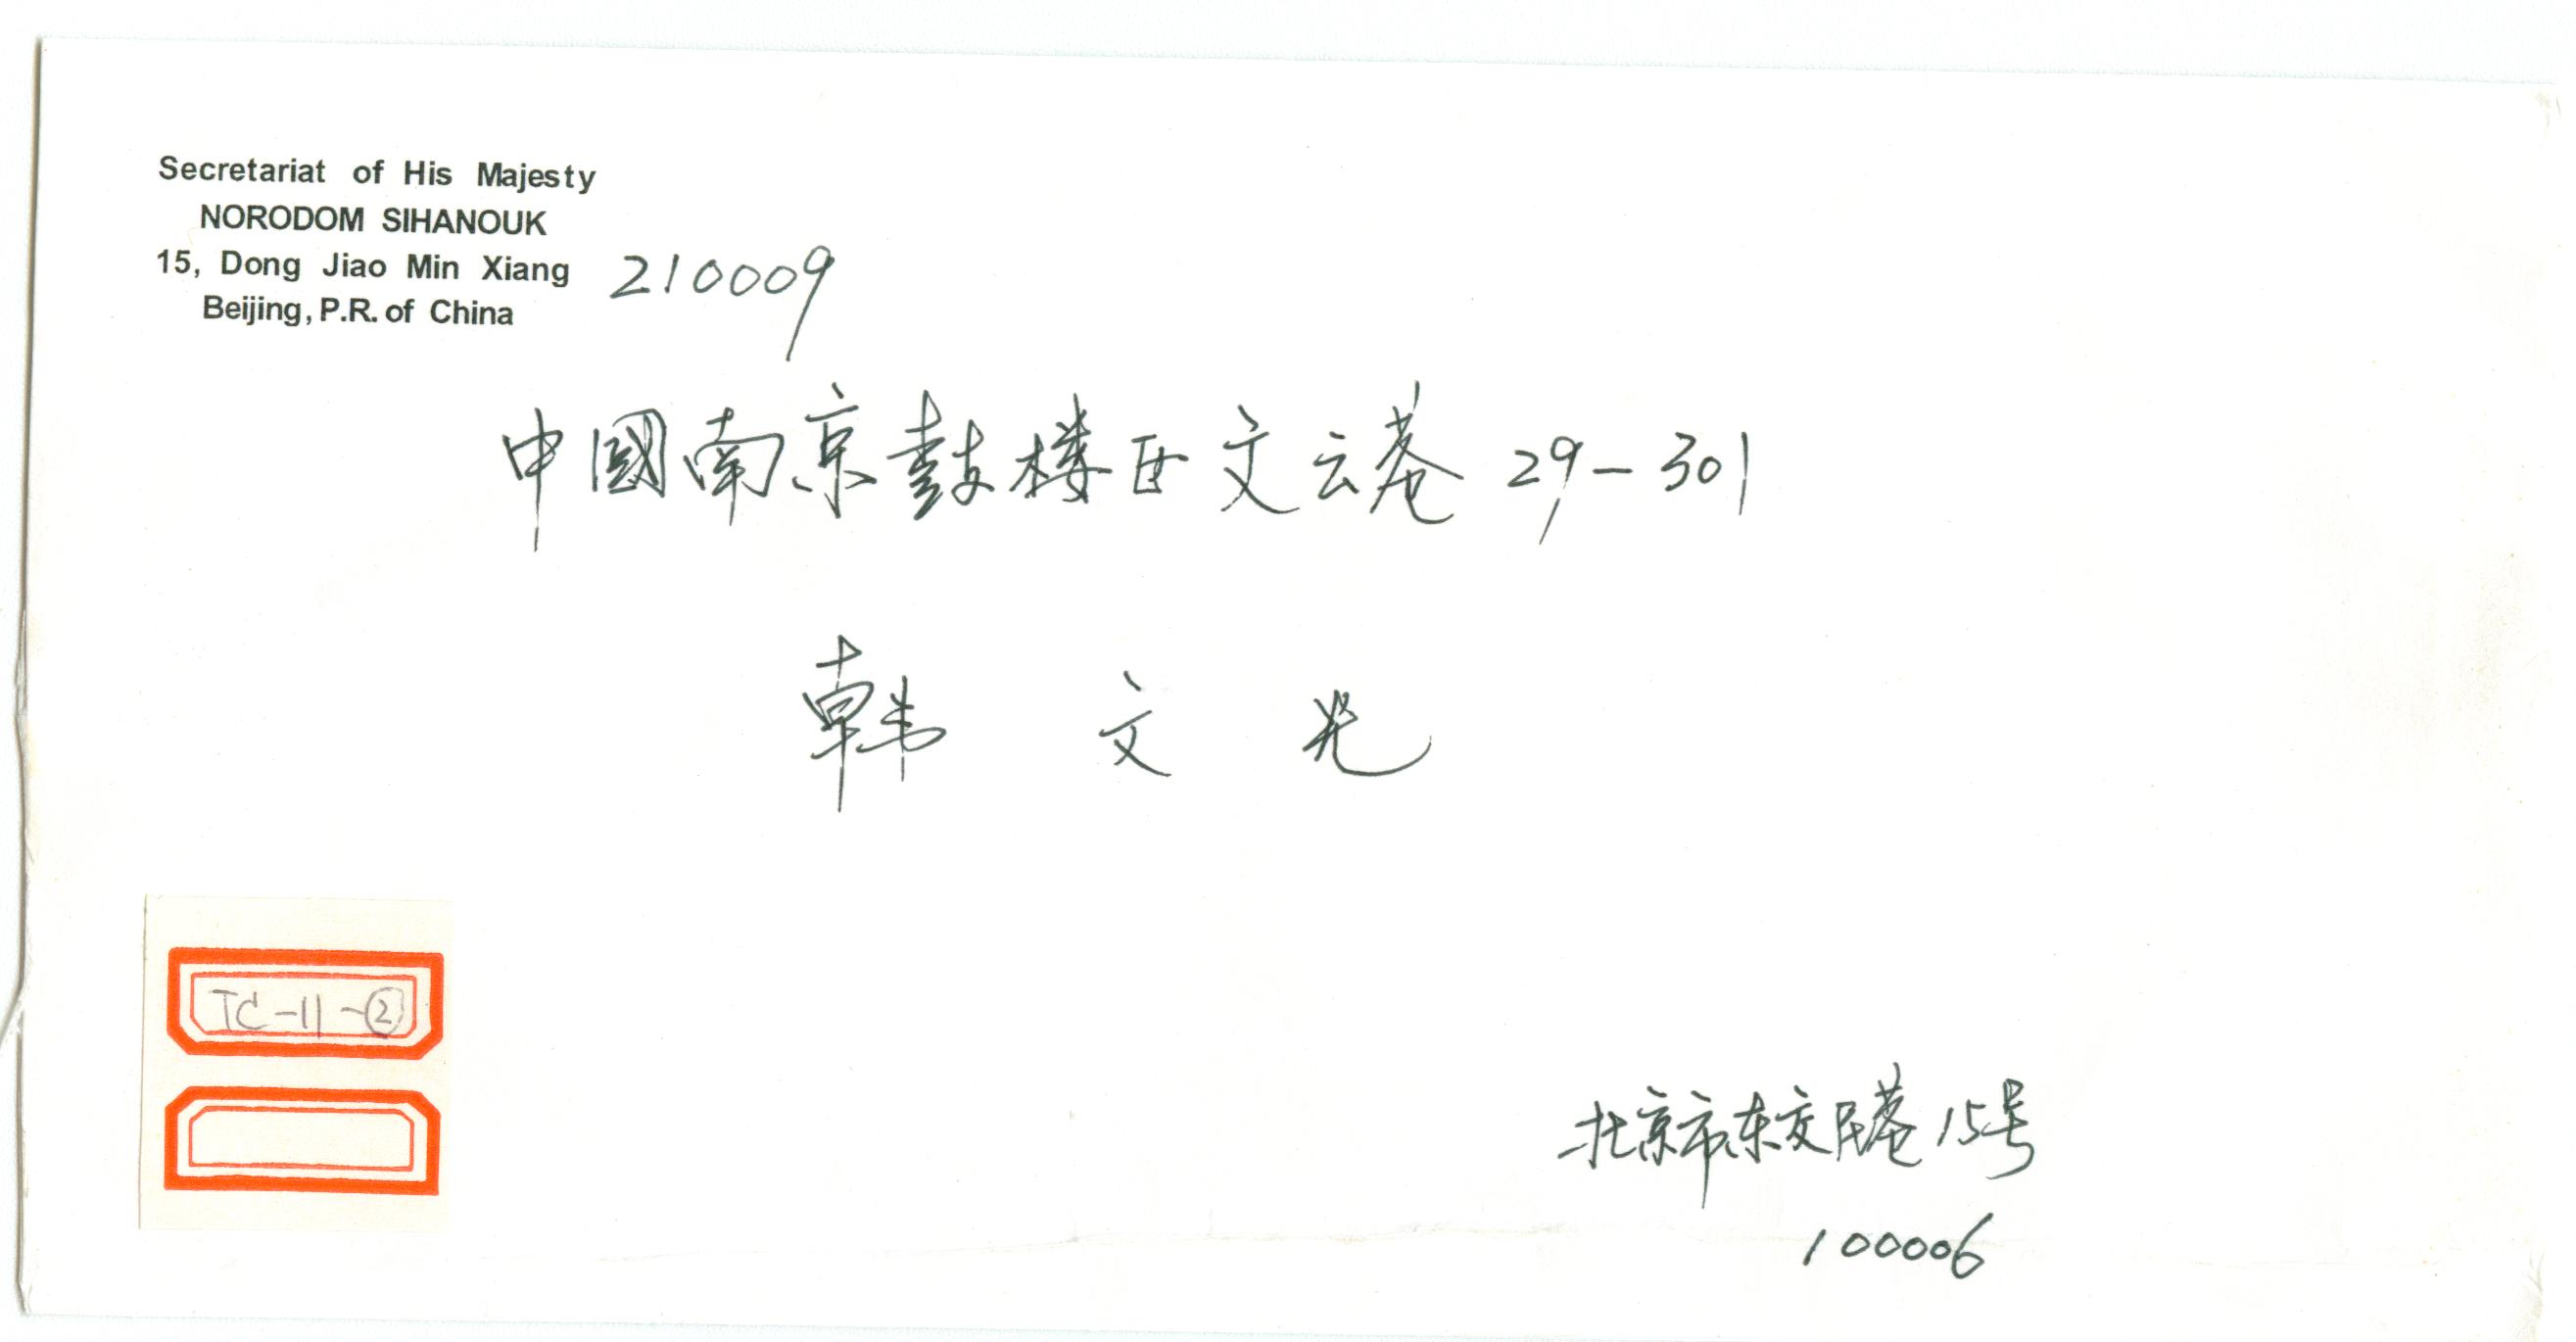 Secretariat of His Majesty
NORODOM SIHANOUK
15, Dong Jiao Min Xiang
Beijing, P.R. of China
210009
中國南京鼓楼区文云巷 29-301
韩 文 光
TC-11-②
北京市东交民巷 15号
100006